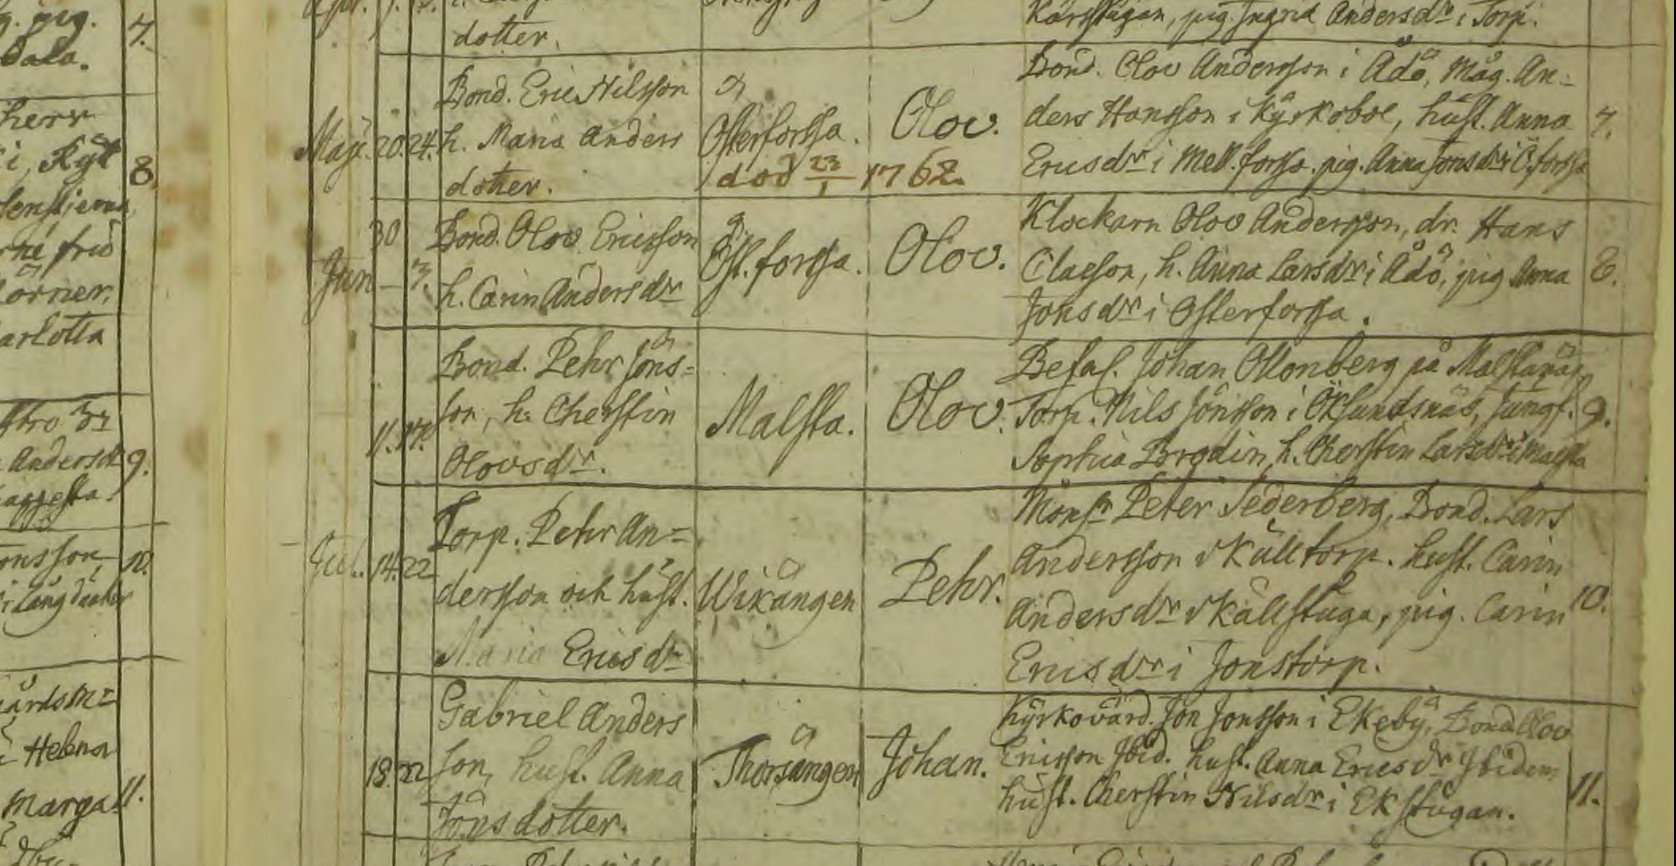 g. pig.
bala.
7.
herr
i, Kyt
8.
arlotta
Anders
9.
onsson,
10.
Helena
Marga
11.
Apr.
dotter.
Kärrstugan, pig. Ingrid Andersdr i Torp.
Maji. 20. 24.
Bond. Eric Nilsson
h. Maria Anders
dotter.
Osterforssa.
död 23/1 1762.
Olov.
Bond. Olov Andersson i Ådö, Måg. An=
ders Hansson i Kyrkobol, hust. Anna
Ericsdr i Mell.forss. pig. Anna Jonsdr i O.forssa
7.
30
Jun - 3.
Bond. Olov Ericsson
h. Carin Andersdr
Öst.forssa.
Olov.
Klockarn Olov Andersson, dr. Hans
Claesson, h. Anna Larsdr i Ådö, pig Anna
Jonsdr i Osterforssa.
8.
11. 17.
Bond. Pehr Jöns=
son, h. Cherstin
Olovsdr.
Malsta.
Olov.
Befal. Johan Ollonberg på Malsta
Torp. Nils Jönsson i Öksundsnäs, Jungf.
Sophia Brodin, h. Cherstin Larsdr i Malsta
9.
Jul. 14. 22
Torp. Pehr An=
dersson och hust.
Maria Ericsdr
Wikängen
Pehr.
Monsr Peter Sederberg, Bond. Lars
Andersson i Källtorp. hust. Carin
Andersdr i Källstuga, pig. Carin
Ericsdr i Jonstorp.
10.
18. 22
Gabriel Anders
son, hust. Anna
Jönsdotter.
Thorsängen
Johan.
Kyrkovärd. Jon Jonsson i Ekeby, Bond Olov
Ericsson Ibid. hust. Anna Ericsdr Ibidem
hust. Cherstin Nilsdr i Ekstugan.
11.